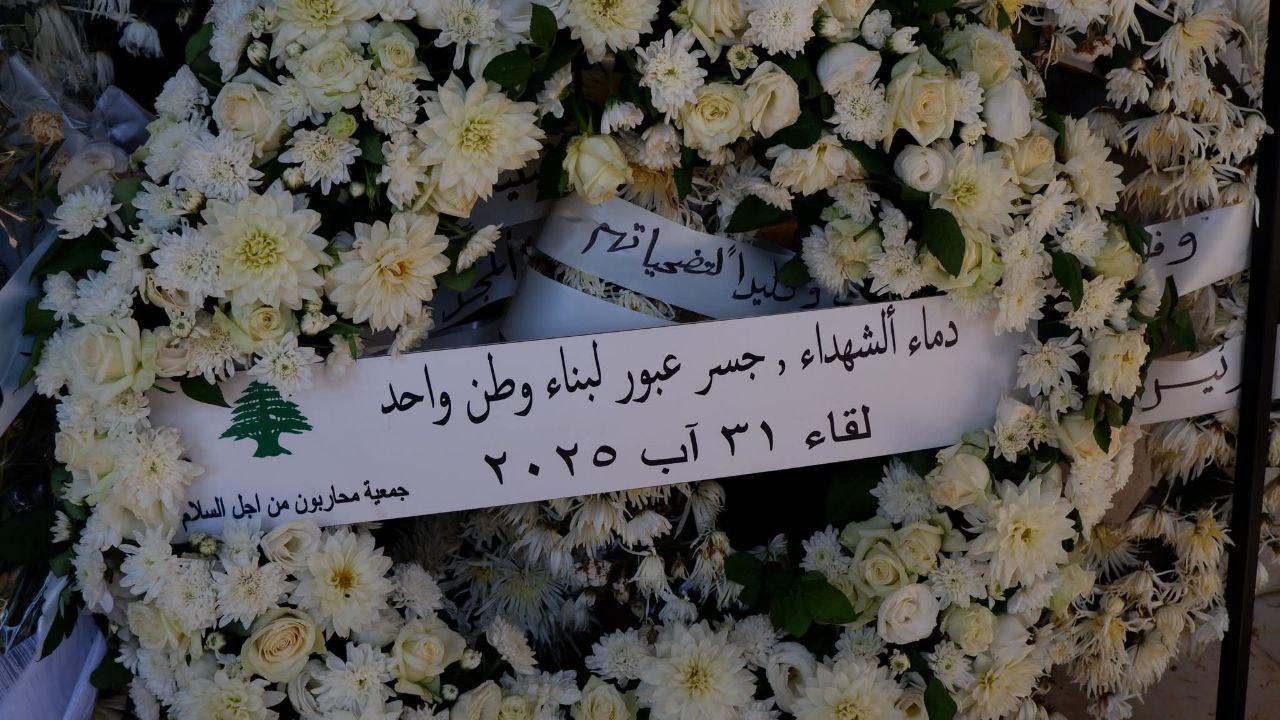 وتخليداً لتضحياتهم
دماء ألشهداء , جسر عبور لبناء وطن واحد
لقاء ٣١ آب ٢٠٢٥
جمعية محاربون من اجل السلام